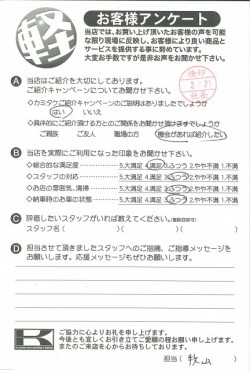 軽
お客様アンケート
当店では、お買い上げ頂いたお客様の声を可能
な限り現場に反映し、お客様により良い商品と
サービスを提供する事に努めています。
大変お手数ですが是非お声をお聞かせ下さい。
A 当店はご紹介を大切にしております。
ご紹介キャンペーンについてお聞かせ下さい。
◇カミタケご紹介キャンペーンのご説明はありましたでしょうか
はい いいえ
◇具体的にご紹介頂ける方とのご関係をお聞かせ頂けますでしょうか?
ご親族 ご友人 職場の方 機会があれば紹介したい
B 当店を実際にご利用になった印象をお聞かせ下さい。
◇総合的な満足度 5.大満足 4.満足 3.ふつう 2.やや不満 1.不満
◇スタッフの対応 5.大満足 4.満足 3.ふつう 2.やや不満 1.不満
◇お店の雰囲気、清掃 5.大満足 4.満足 3.ふつう 2.やや不満 1.不満
◇納車時のお車の状態 5.大満足 4.満足 3.ふつう 2.やや不満 1.不満
C 評価したいスタッフがいれば教えてください。
スタッフ名( )( )( )
D 担当させて頂きましたスタッフへのご指摘、ご指導メッセージを
お願いします。応援メッセージもぜひお願いします。
K
ご協力に心よりお礼を申し上げます。
今後とも宜しくお引き立てご愛顧の程お願い申し上げます。
またのご来店を心からお待ちしております。
担当( 牧山 )